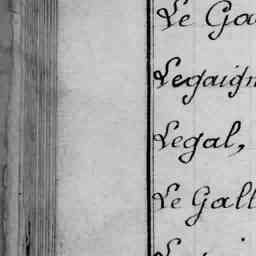 Le Ga
Legaign
Legal,
Le Gall